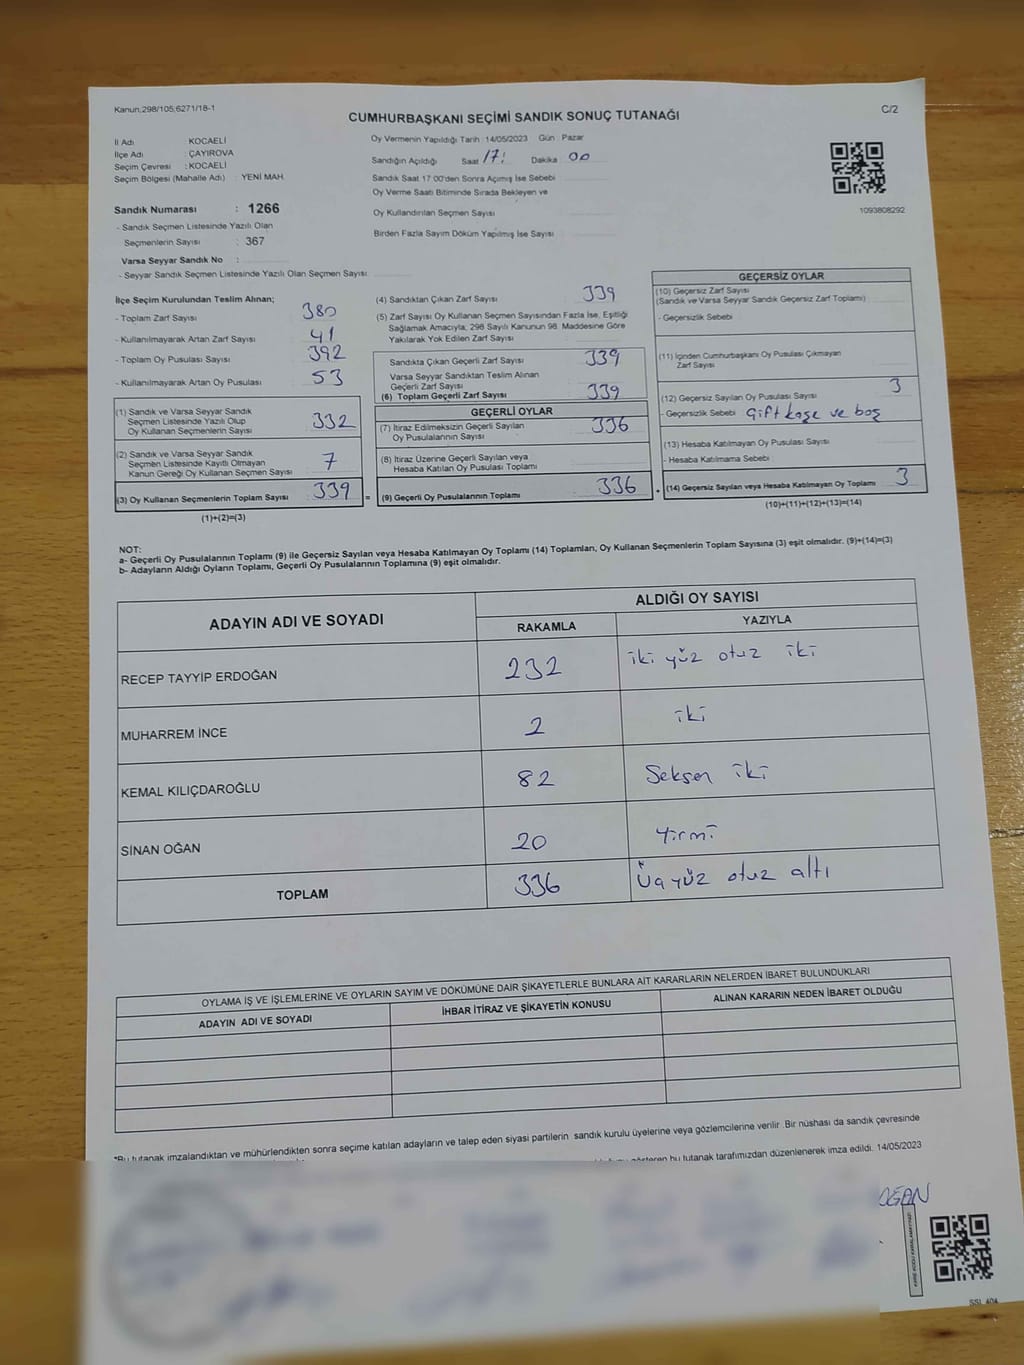 Kanun,298/105,6271/18-1
C/2
CUMHURBAŞKANI SEÇİMİ SANDIK SONUÇ TUTANAĞI
İl Adı KOCAELİ
İlçe Adı : ÇAYIROVA
Seçim Çevresi : KOCAELİ
Seçim Bölgesi (Mahalle Adı) : YENİ MAH.
Sandık Numarası : 1266
- Sandık Seçmen Listesinde Yazılı Olan
Seçmenlerin Sayısı : 367
Varsa Seyyar Sandık No :
- Seyyar Sandık Seçmen Listesinde Yazılı Olan Seçmen Sayısı
Oy Vermenin Yapıldığı Tarih :14/05/2023 Gün : Pazar
Sandığın Açıldığı Saat 17: Dakika 00
Sandık Saat 17:00'den Sonra Açımış İse Sebebi
Oy Verme Saati Bitiminde Sırada Bekleyen ve
Oy Kullandırılan Seçmen Sayısı
Birden Fazla Sayım Döküm Yapılmış İse Sayısı
1093808292
İlçe Seçim Kurulundan Teslim Alınan;
- Toplam Zarf Sayısı 380
- Kullanılmayarak Artan Zarf Sayısı 41
- Toplam Oy Pusulası Sayısı 392
- Kullanılmayarak Artan Oy Pusulası 53
(1) Sandık ve Varsa Seyyar Sandık
Seçmen Listesinde Yazılı Olup
Oy Kullanan Seçmenlerin Sayısı 332
(2) Sandık ve Varsa Seyyar Sandık
Seçmen Listesinde Kayıtlı Olmayan
Kanun Gereği Oy Kullanan Seçmen Sayısı 7
(3) Oy Kullanan Seçmenlerin Toplam Sayısı 339 =
(1)+(2)=(3)
(4) Sandıktan Çıkan Zarf Sayısı 339
(5) Zarf Sayısı Oy Kullanan Seçmen Sayısından Fazla İse, Eşitliği
Sağlamak Amacıyla, 298 Sayılı Kanunun 98. Maddesine Göre
Yakılarak Yok Edilen Zarf Sayısı
Sandıkta Çıkan Geçerli Zarf Sayısı 339
Varsa Seyyar Sandıktan Teslim Alınan
Geçerli Zarf Sayısı
(6) Toplam Geçerli Zarf Sayısı 339
GEÇERLİ OYLAR
(7) İtiraz Edilmeksizin Geçerli Sayılan
Oy Pusulalarının Sayısı 336
(8) İtiraz Üzerine Geçerli Sayılan veya
Hesaba Katılan Oy Pusulası Toplamı
(9) Geçerli Oy Pusulalarının Toplamı 336 +
GEÇERSİZ OYLAR
(10) Geçersiz Zarf Sayısı
(Sandık ve Varsa Seyyar Sandık Geçersiz Zarf Toplamı)
- Geçersizlik Sebebi
(11) İçinden Cumhurbaşkanı Oy Pusulası Çıkmayan
Zarf Sayısı
(12) Geçersiz Sayılan Oy Pusulası Sayısı 3
- Geçersizlik Sebebi Çift kaşe ve boş
(13) Hesaba Katılmayan Oy Pusulası Sayısı
- Hesaba Katılmama Sebebi
(14) Geçersiz Sayılan veya Hesaba Katılmayan Oy Toplamı 3
(10)+(11)+(12)+(13)=(14)
NOT:
a- Geçerli Oy Pusulalarının Toplamı (9) ile Geçersiz Sayılan veya Hesaba Katılmayan Oy Toplamı (14) Toplamları, Oy Kullanan Seçmenlerin Toplam Sayısına (3) eşit olmalıdır. (9)+(14)=(3)
b- Adayların Aldığı Oyların Toplamı, Geçerli Oy Pusulalarının Toplamına (9) eşit olmalıdır.
ADAYIN ADI VE SOYADI
ALDIĞI OY SAYISI
RAKAMLA YAZIYLA
RECEP TAYYİP ERDOĞAN 232 iki yüz otuz iki
MUHARREM İNCE 2 iki
KEMAL KILIÇDAROĞLU 82 Seksen iki
SİNAN OĞAN 20 Yirmi
TOPLAM 336 Üç yüz otuz altı
OYLAMA İŞ VE İŞLEMLERİNE VE OYLARIN SAYIM VE DÖKÜMÜNE DAİR ŞİKAYETLERLE BUNLARA AİT KARARLARIN NELERDEN İBARET BULUNDUKLARI
ADAYIN ADI VE SOYADI İHBAR İTİRAZ VE ŞİKAYETİN KONUSU ALINAN KARARIN NEDEN İBARET OLDUĞU
*Bu tutanak imzalandıktan ve mühürlendikten sonra seçime katılan adayların ve talep eden siyasi partilerin sandık kurulu üyelerine veya gözlemcilerine verilir. Bir nüshası da sandık çevresinde
gösteren bu tutanak tarafımızdan düzenlenerek imza edildi. 14/05/2023
SSL 404